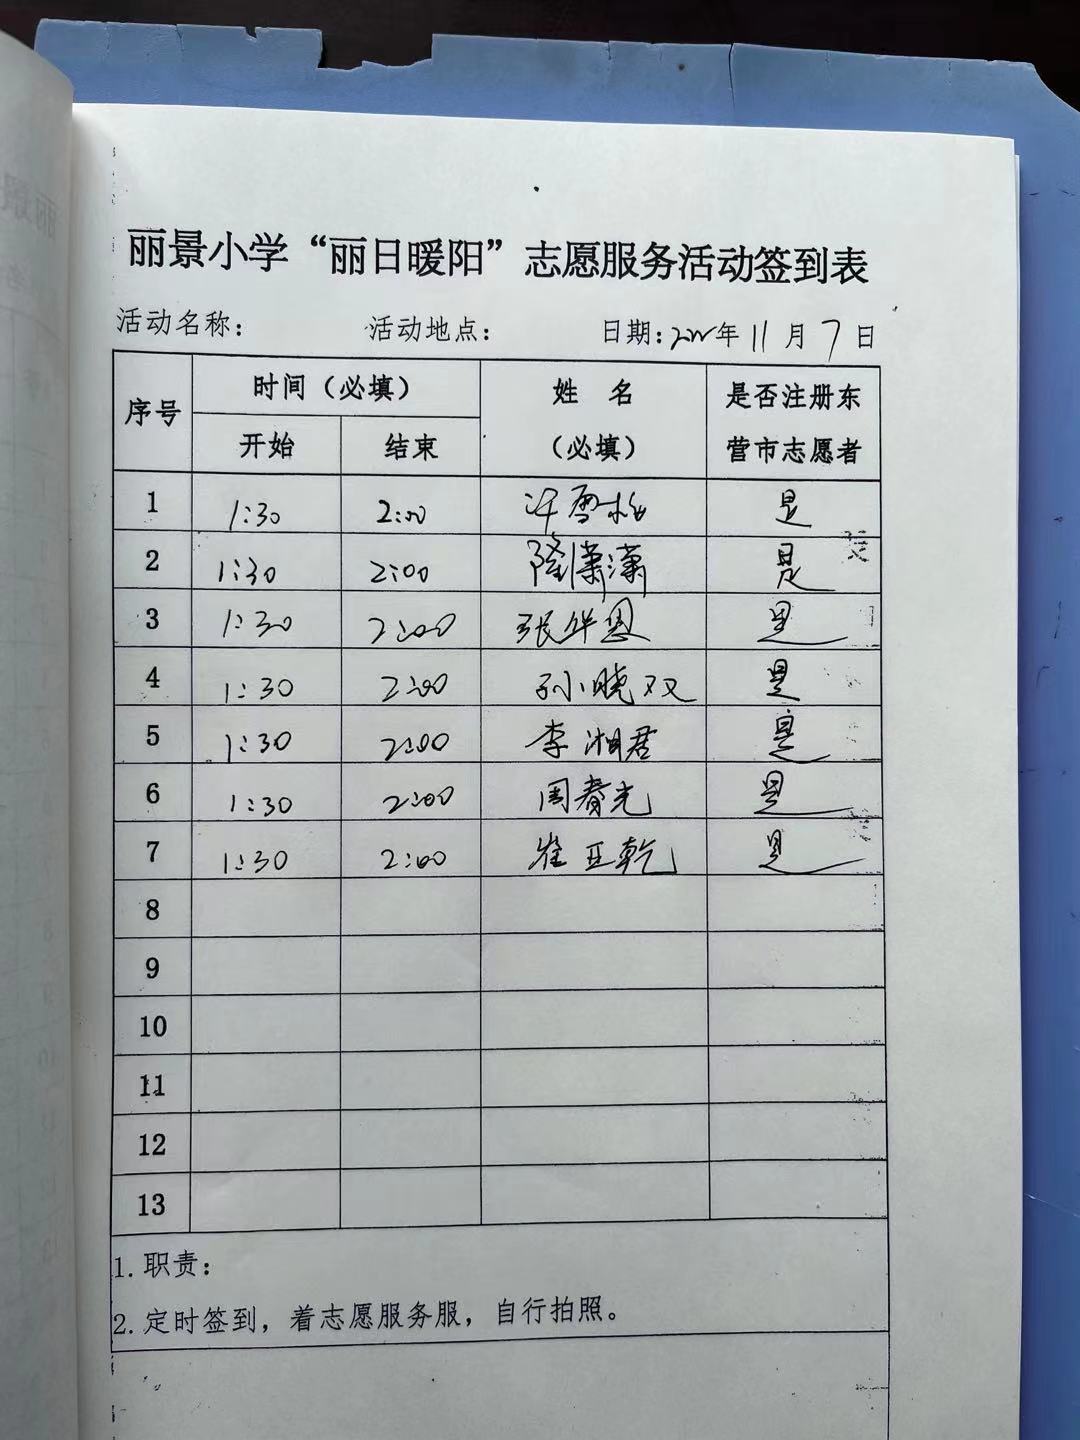 丽景小学“丽日暖阳”志愿服务活动签到表
活动名称： 活动地点： 日期: 年 11 月 7 日
序号 时间（必填） 姓 名 是否注册东
开始 结束 （必填） 营市志愿者
1 1:30 2:00 许雪 是
2 1:30 2:00 隆潇潇 是
3 1:30 2:00 张华恩 是
4 1:30 2:00 孙晓双 是
5 1:30 2:00 李湘君 是
6 1:30 2:00 周春光 是
7 1:30 2:00 崔亚乾 是
8
9
10
11
12
13
1.职责：
2.定时签到，着志愿服务服，自行拍照。